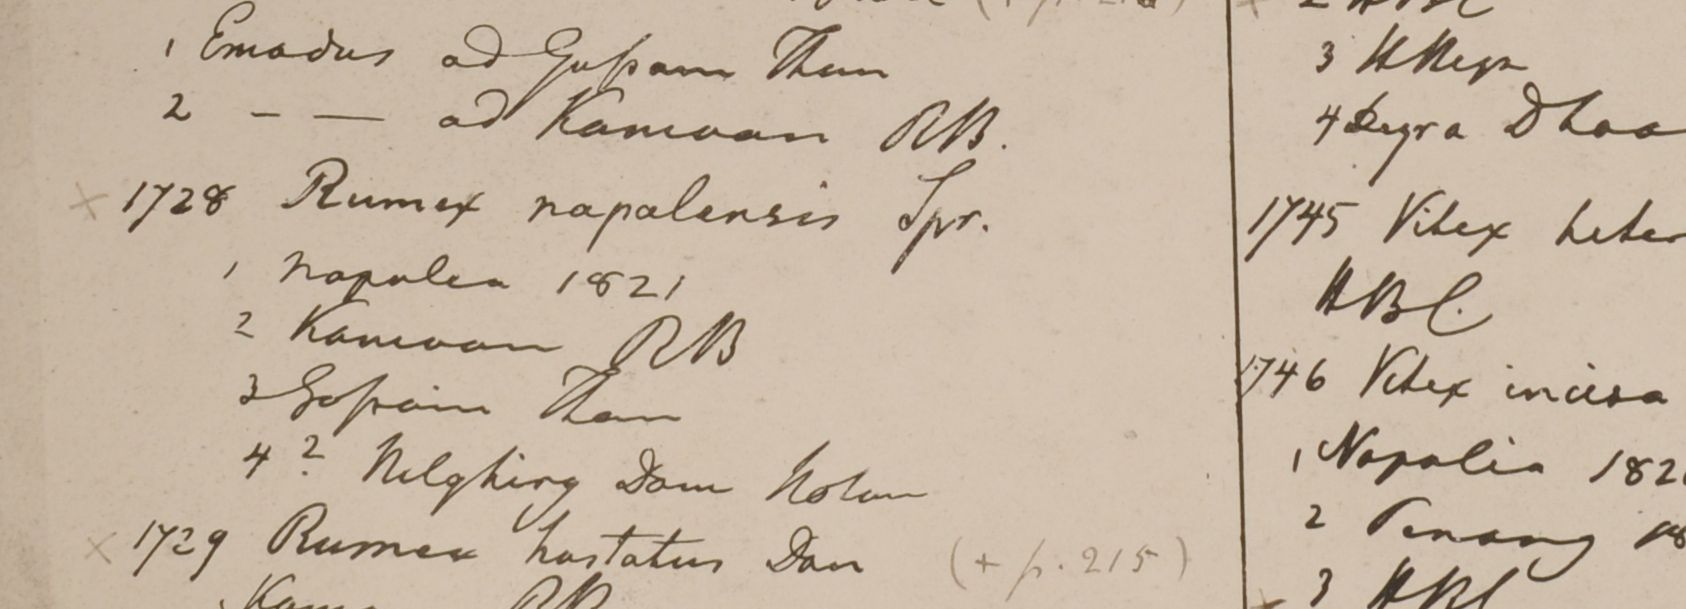 (+ p. 21
1 Emodus ad Gosam Than
2 – — ad Kamoan RB.
× 1728 Rumex napalensis Spr.
1 Napalea 1821
2 Kamoan RB
3 Gosain Than
4 ? Nilghiry Dom Noton
× 1729 Rumex hastatus Don (+ p. 215)
RB
2 HBC
3 H
4 Deyra Dhoo
1745 Vitex heter
HBC.
1746 Vitex incisa
1 Napalia 182
2 Penang 18
3 HBC